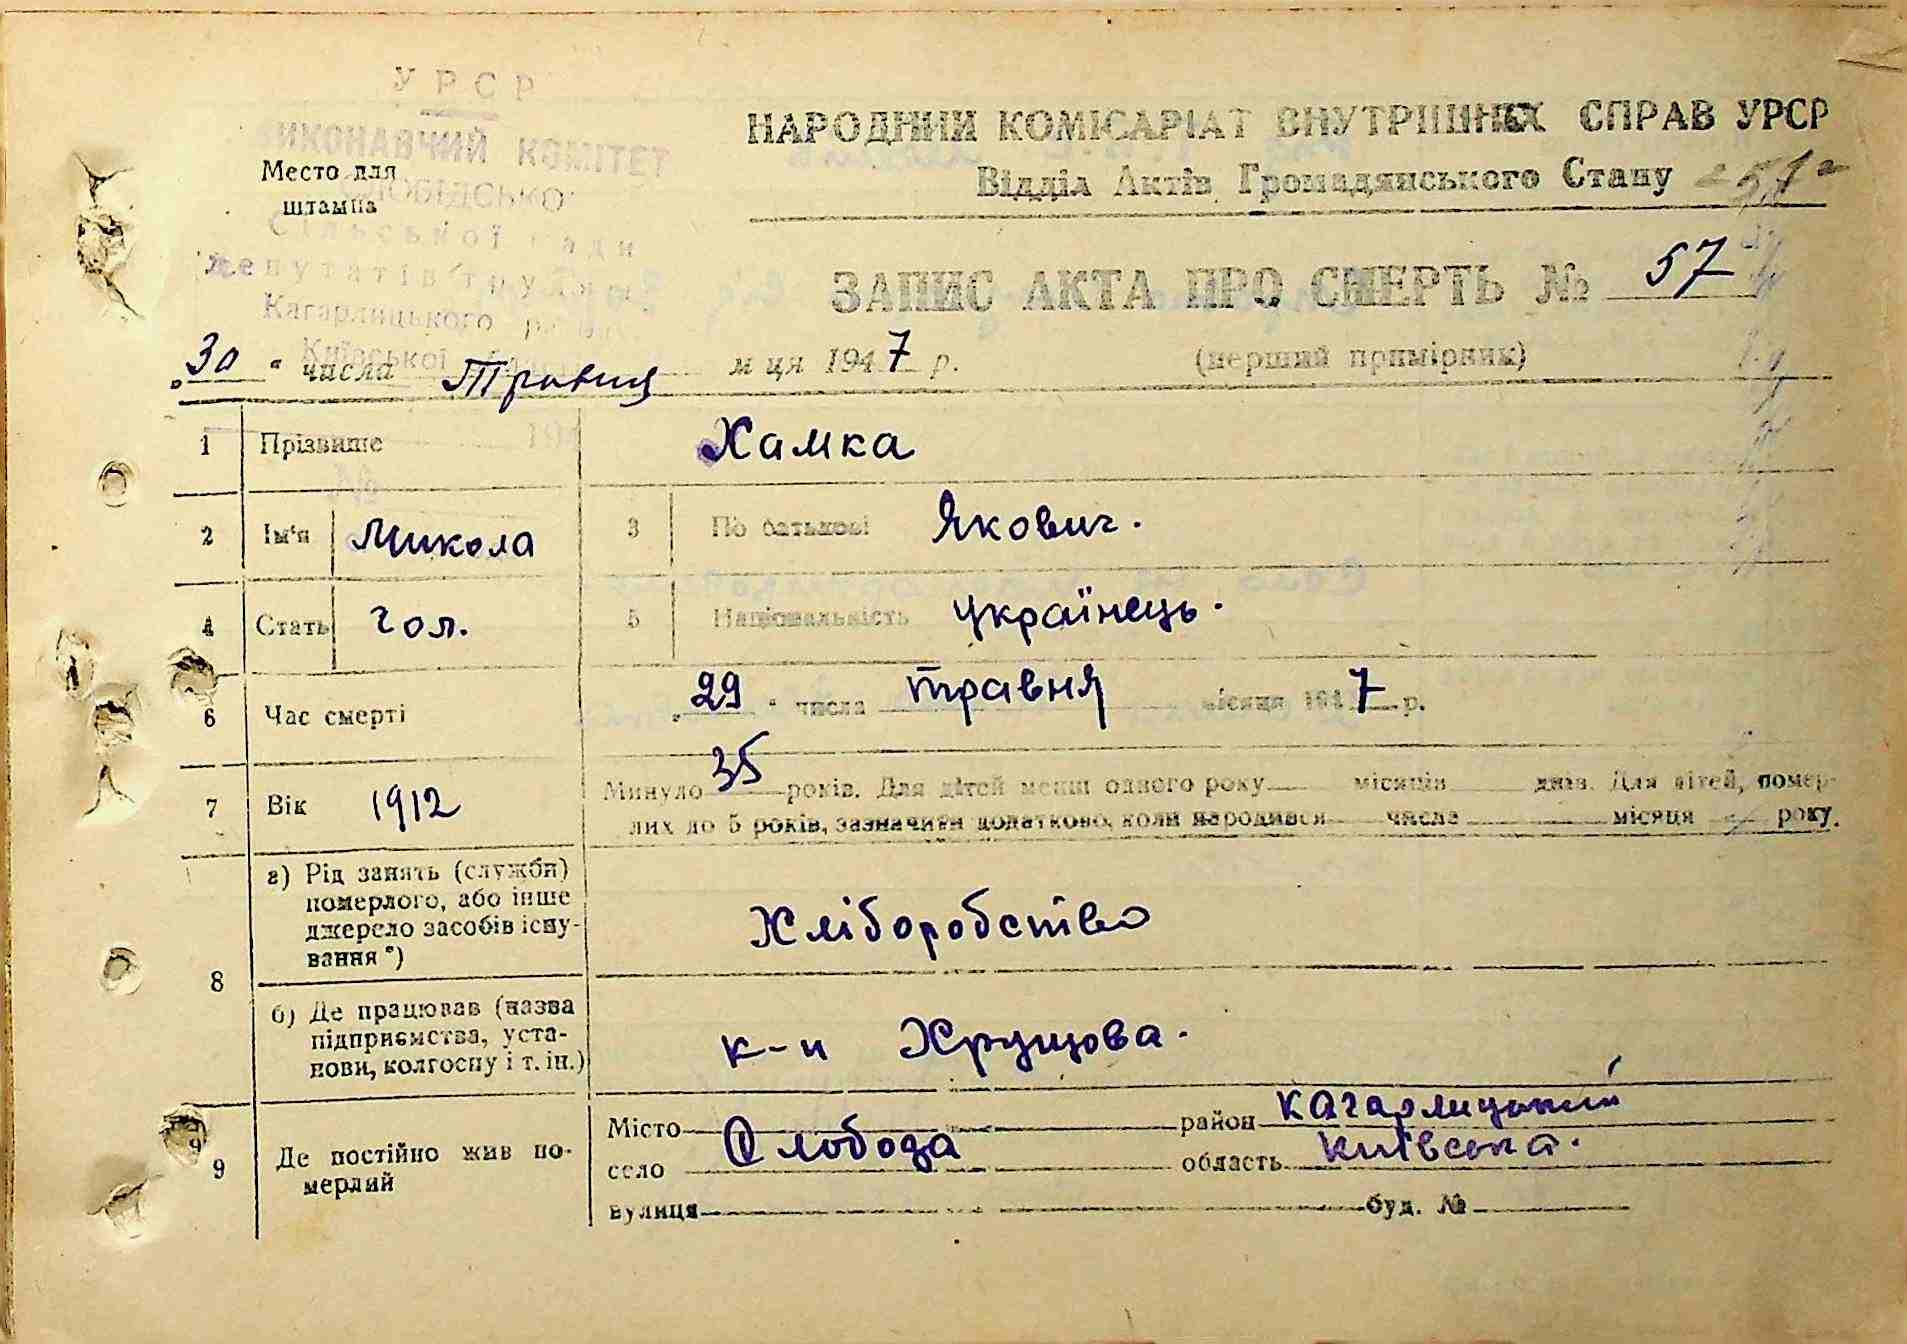 УРСР
ВИКОНАВЧИЙ КОМІТЕТ
Сільської Ради
депутатів трудящ
Кагарлицького
Київської
194
№
Место для
штампа
НАРОДНИЙ КОМІСАРІАТ ВНУТРІШНІХ СПРАВ УРСР
Відділ Актів Громадянського Стану
ЗАПИС АКТА ПРО СМЕРТЬ № 57
„30“ числа Травня м-ця 1947 р. (перший примірник)
1 Прізвище Хамка
2 Ім'я Микола 3 По батькові Якович.
4 Стать чол. 5 Національність українець.
6 Час смерті „29“ числа травня місяця 1947 р.
7 Вік 1912 Минуло 35 років. Для дітей менш одного року місяців днів. Для дітей, помер-
лих до 5 років, зазначити додатково, коли народився числа місяця року.
8 а) Рід занять (служби)
померлого, або інше
джерело засобів існу-
вання*)
Хліборобство
б) Де працював (назва
підприємства, уста-
нови, колгоспу і т. ін.)
к-п Хрущова.
9 Де постійно жив по-
мерлий
Місто район Кагарлицький
село Слобода область Київська.
вулиця буд. №